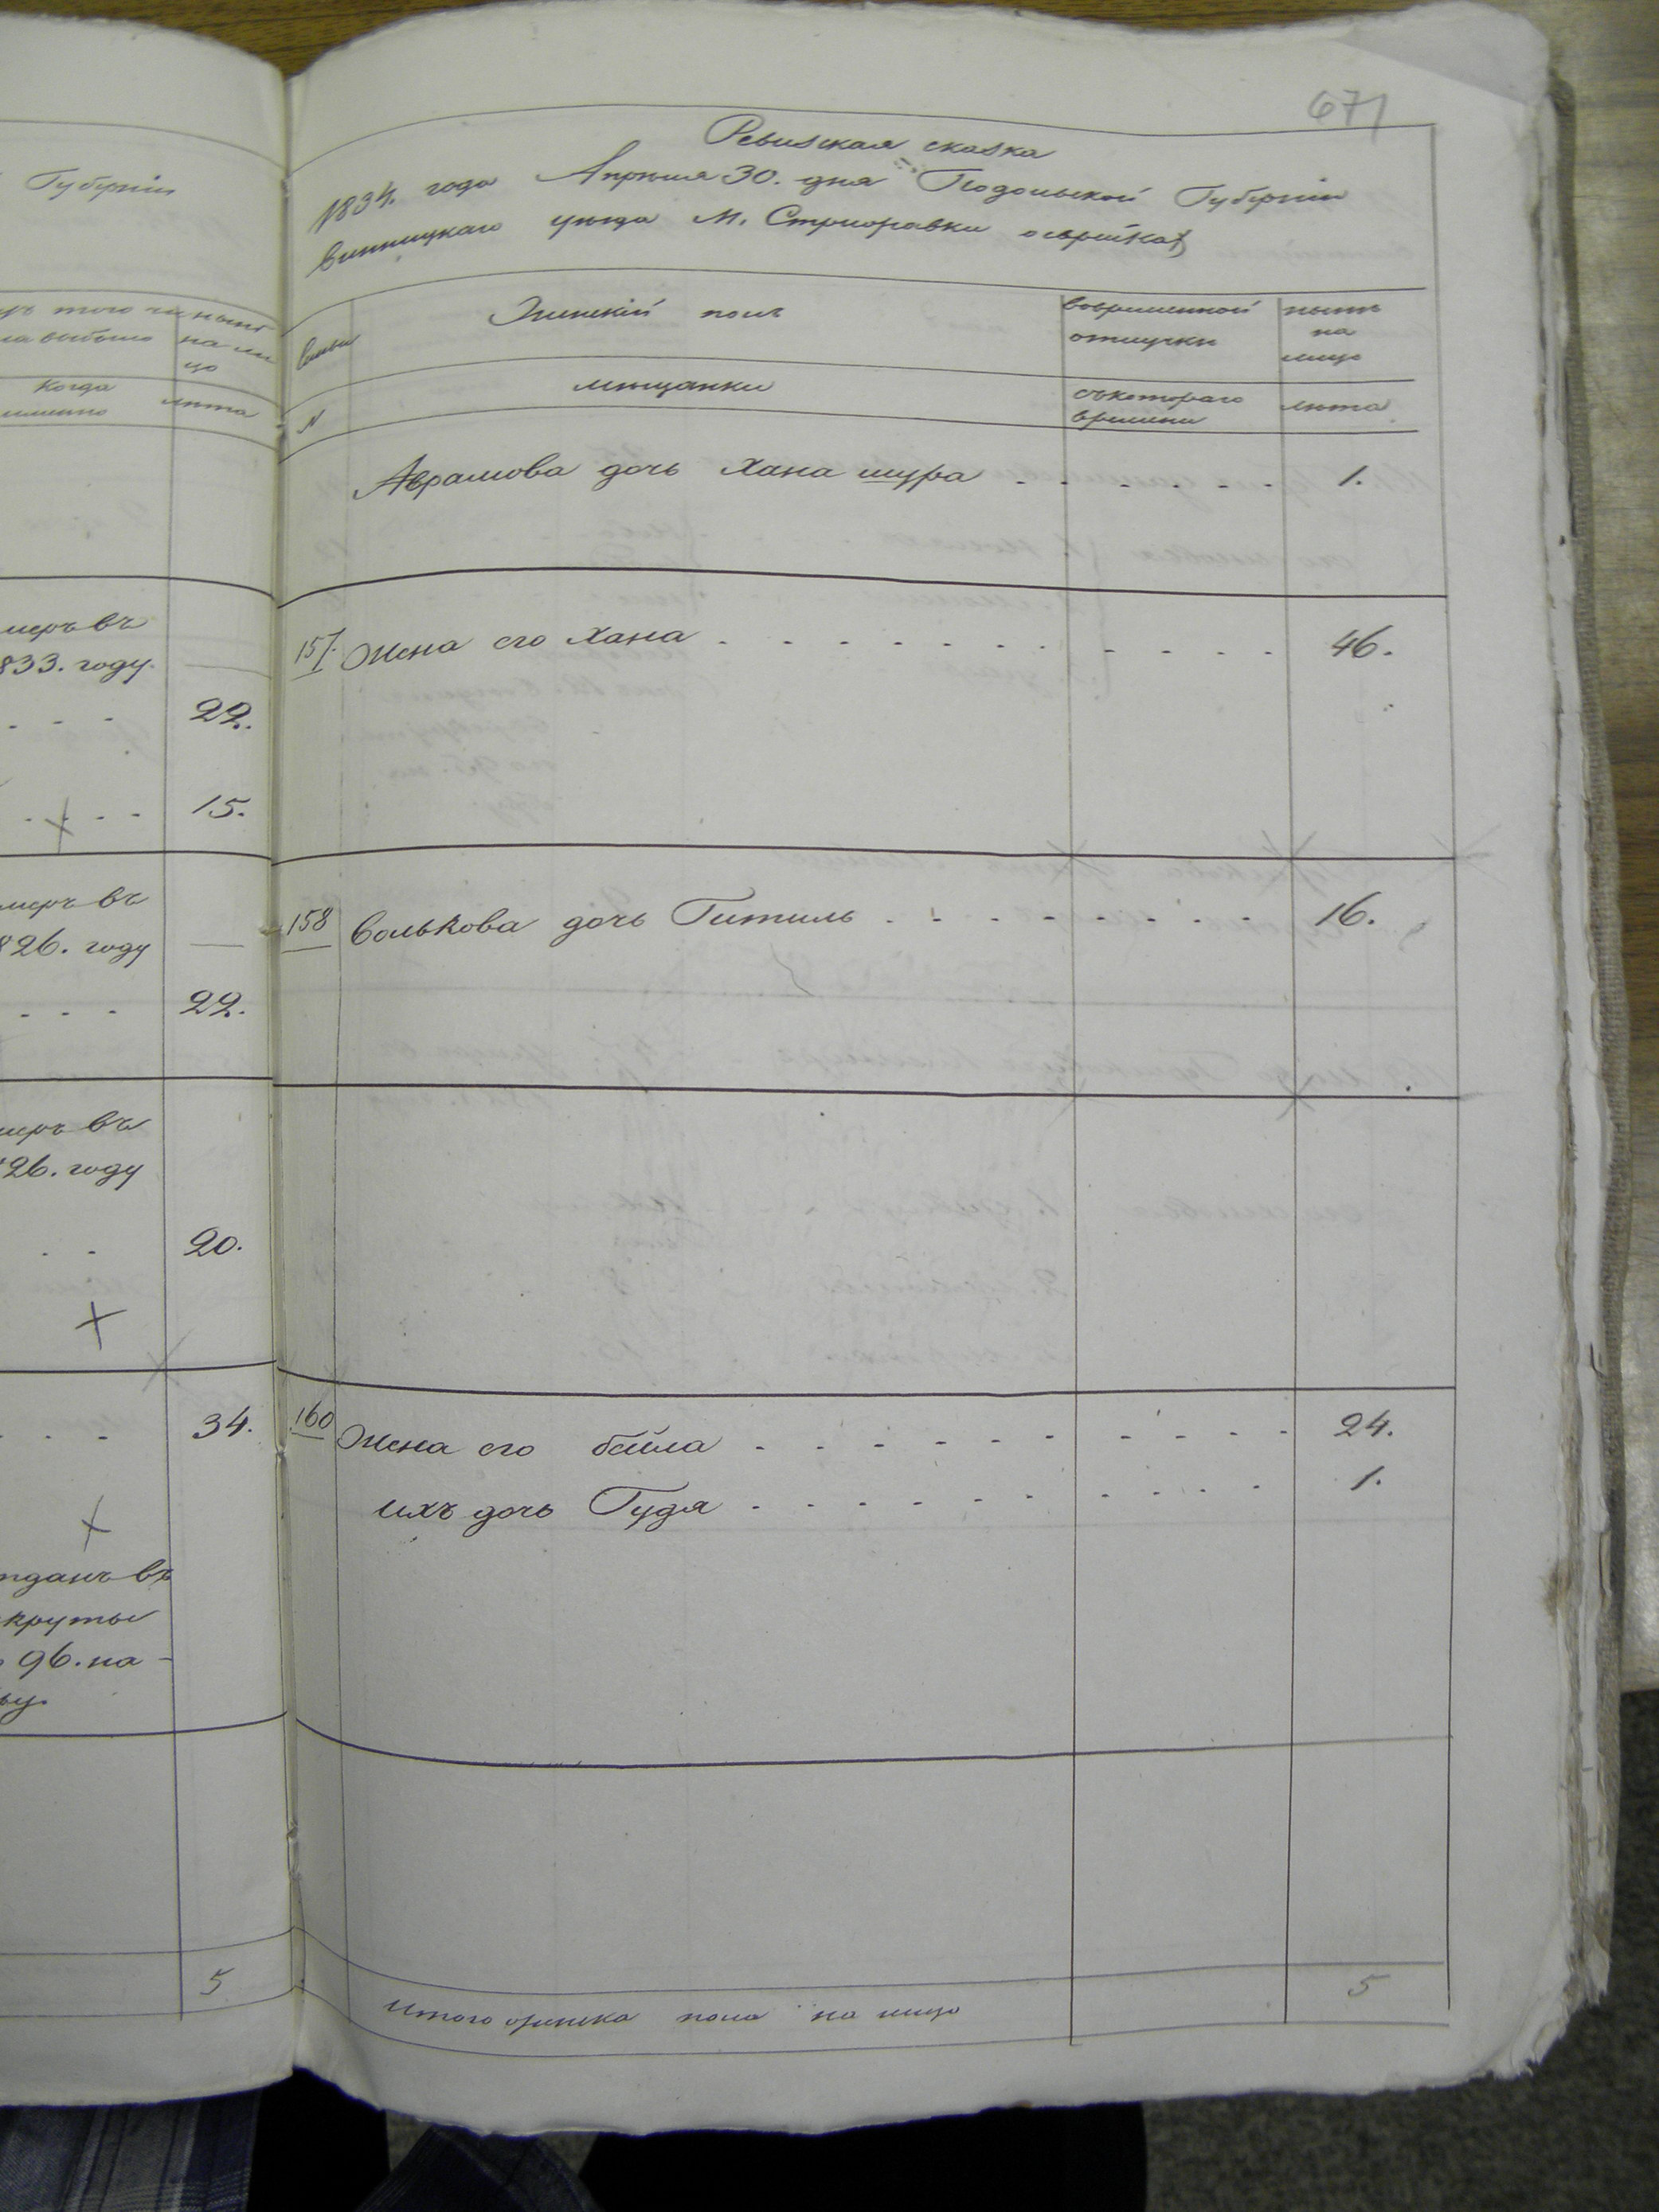 Губернiи
ла выбыло
когда
лѣта
меръ въ
833. году.
22.
15.
меръ въ
826. году
22.
меръ въ
26. году
20.
34.
тданъ въ
круты
96. на-
5
671
Ревизская сказка
1834. года Апрѣля 30. дня Подольской Губернiи
Винницкаго уѣзда М. Стрижавки о евреяхъ
Семьи
Женскiй полъ
вовременной
отлучкѣ
нынѣ
на
лицо
N
мѣщанки
съкотораго
времени
лѣта
Аврамова дочь Хана шура 1.
157. Жена его Хана 46.
158 Волькова дочь Гитиль 16.
160 Жена его бейла 24.
ихъ дочь Гудя 1.
Итого женска пола на лицо 5